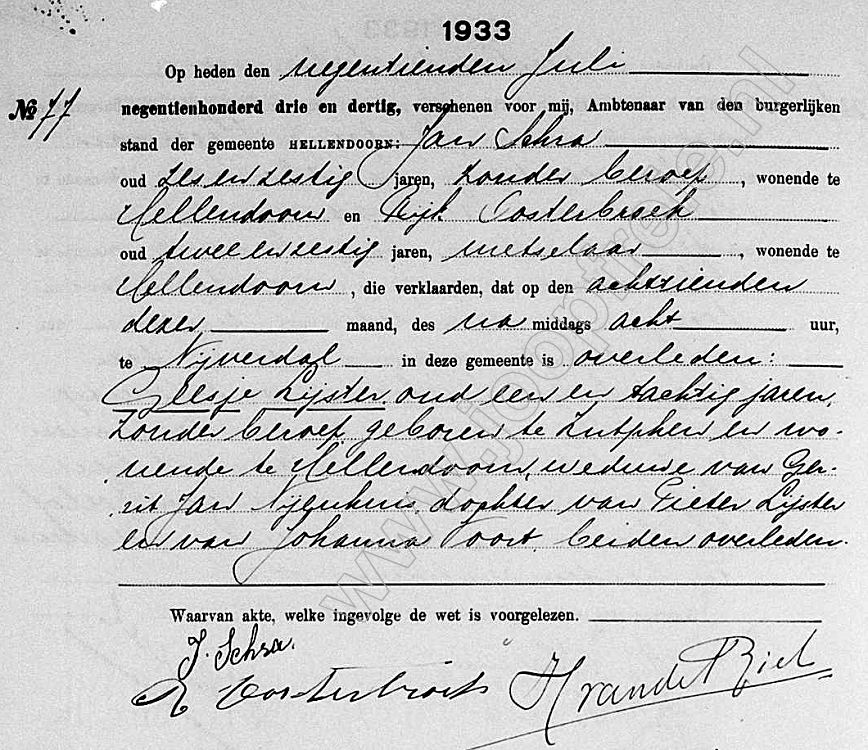 1933
Op heden den negentienden Juli
№ 77 negentienhonderd drie en dertig, verschenen voor mij, Ambtenaar van den burgerlijken
stand der gemeente HELLENDOORN: Jan Schra
oud zes en zestig jaren, zonder beroep, wonende te
Hellendoorn en Oosterbroek
oud twee en zestig jaren, metselaar, wonende te
Hellendoorn, die verklaarden, dat op den achttienden
dezer maand, des na middags acht uur,
te Nijverdal in deze gemeente is overleden:
Geesje Lijster, oud een en tachtig jaren,
zonder beroep, geboren te Zutphen en wo-
nende te Hellendoorn, weduwe van Ger-
rit Jan dochter van Pieter Lijster
en van Johanna Voort, beiden overleden.
Waarvan akte, welke ingevolge de wet is voorgelezen.
J. Schra.
Oosterbroek
www.jooptree.nl